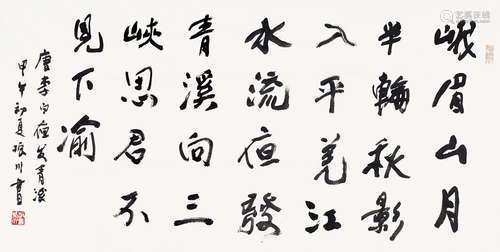 峨眉山月
半輪秋影
入平羌江
水流夜發
青溪向三
峽思君不
見下渝
唐李白夜发青溪
甲午初夏振川書